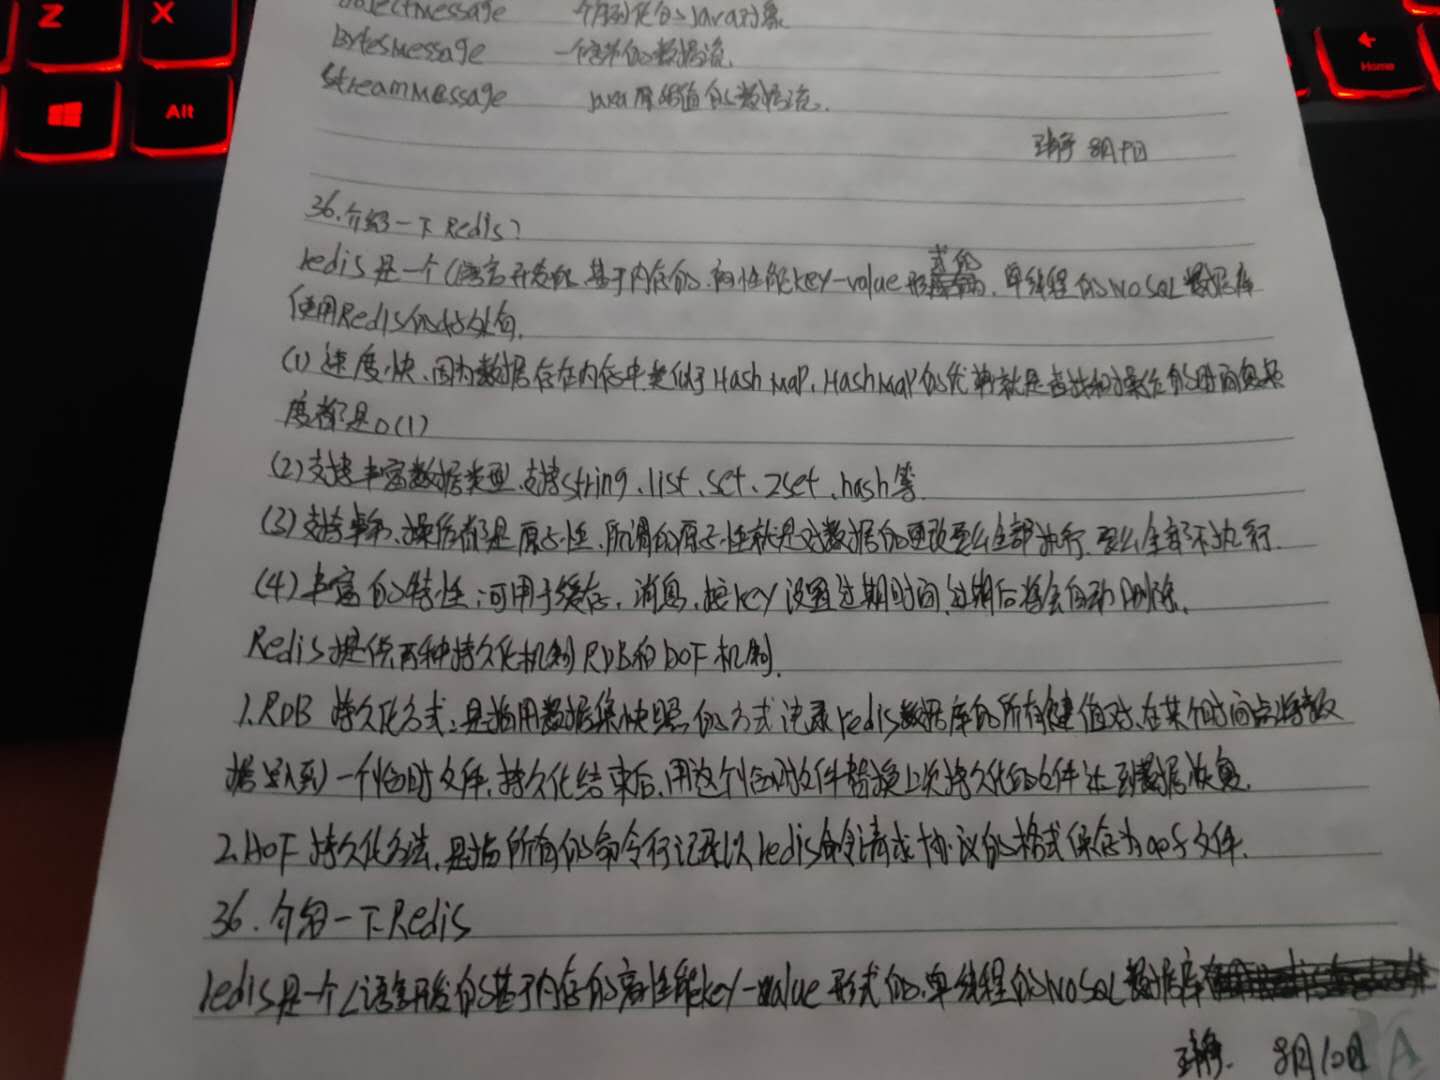 Z
X
Alt
Home
ObjectMessage 一个序列化的Java对象
BytesMessage 一个字节的数据流
StreamMessage Java原始值的数据流.
8月9日
36.介绍一下Redis?
redis是一个C语言开发的.基于内存的.高性能key-value形式的.单线程的NoSQL数据库
使用Redis的好处包.
(1)速度快、因为数据存在内存中类似于HashMap,HashMap的优势就是查找和操作的时间复杂
度都是O(1)
(2)支持丰富数据类型.支持string、list、set、zset、hash等
(3)支持事务、操作都是原子性.所谓的原子性就是对数据的更改要么全部执行.要么全部不执行.
(4)丰富的特性:可用于缓存,消息,按key设置过期时间,过期后将会自动删除.
Redis提供两种持久化机制RDB和AOF机制.
1.RDB 持久化方式:是指用数据集快照的方式记录redis数据库的所有键值对.在某个时间点将数
据写入到一个临时文件,持久化结束后,用这个临时文件替换上次持久化的文件达到数据恢复.
2.AOF 持久化方法,是指所有的命令行记录以redis命令请求协议的格式保存为aof文件.
36.介绍一下Redis
redis是一个C语言开发的基于内存的高性能key-value形式的.单线程的NoSQL数据库
8月10日